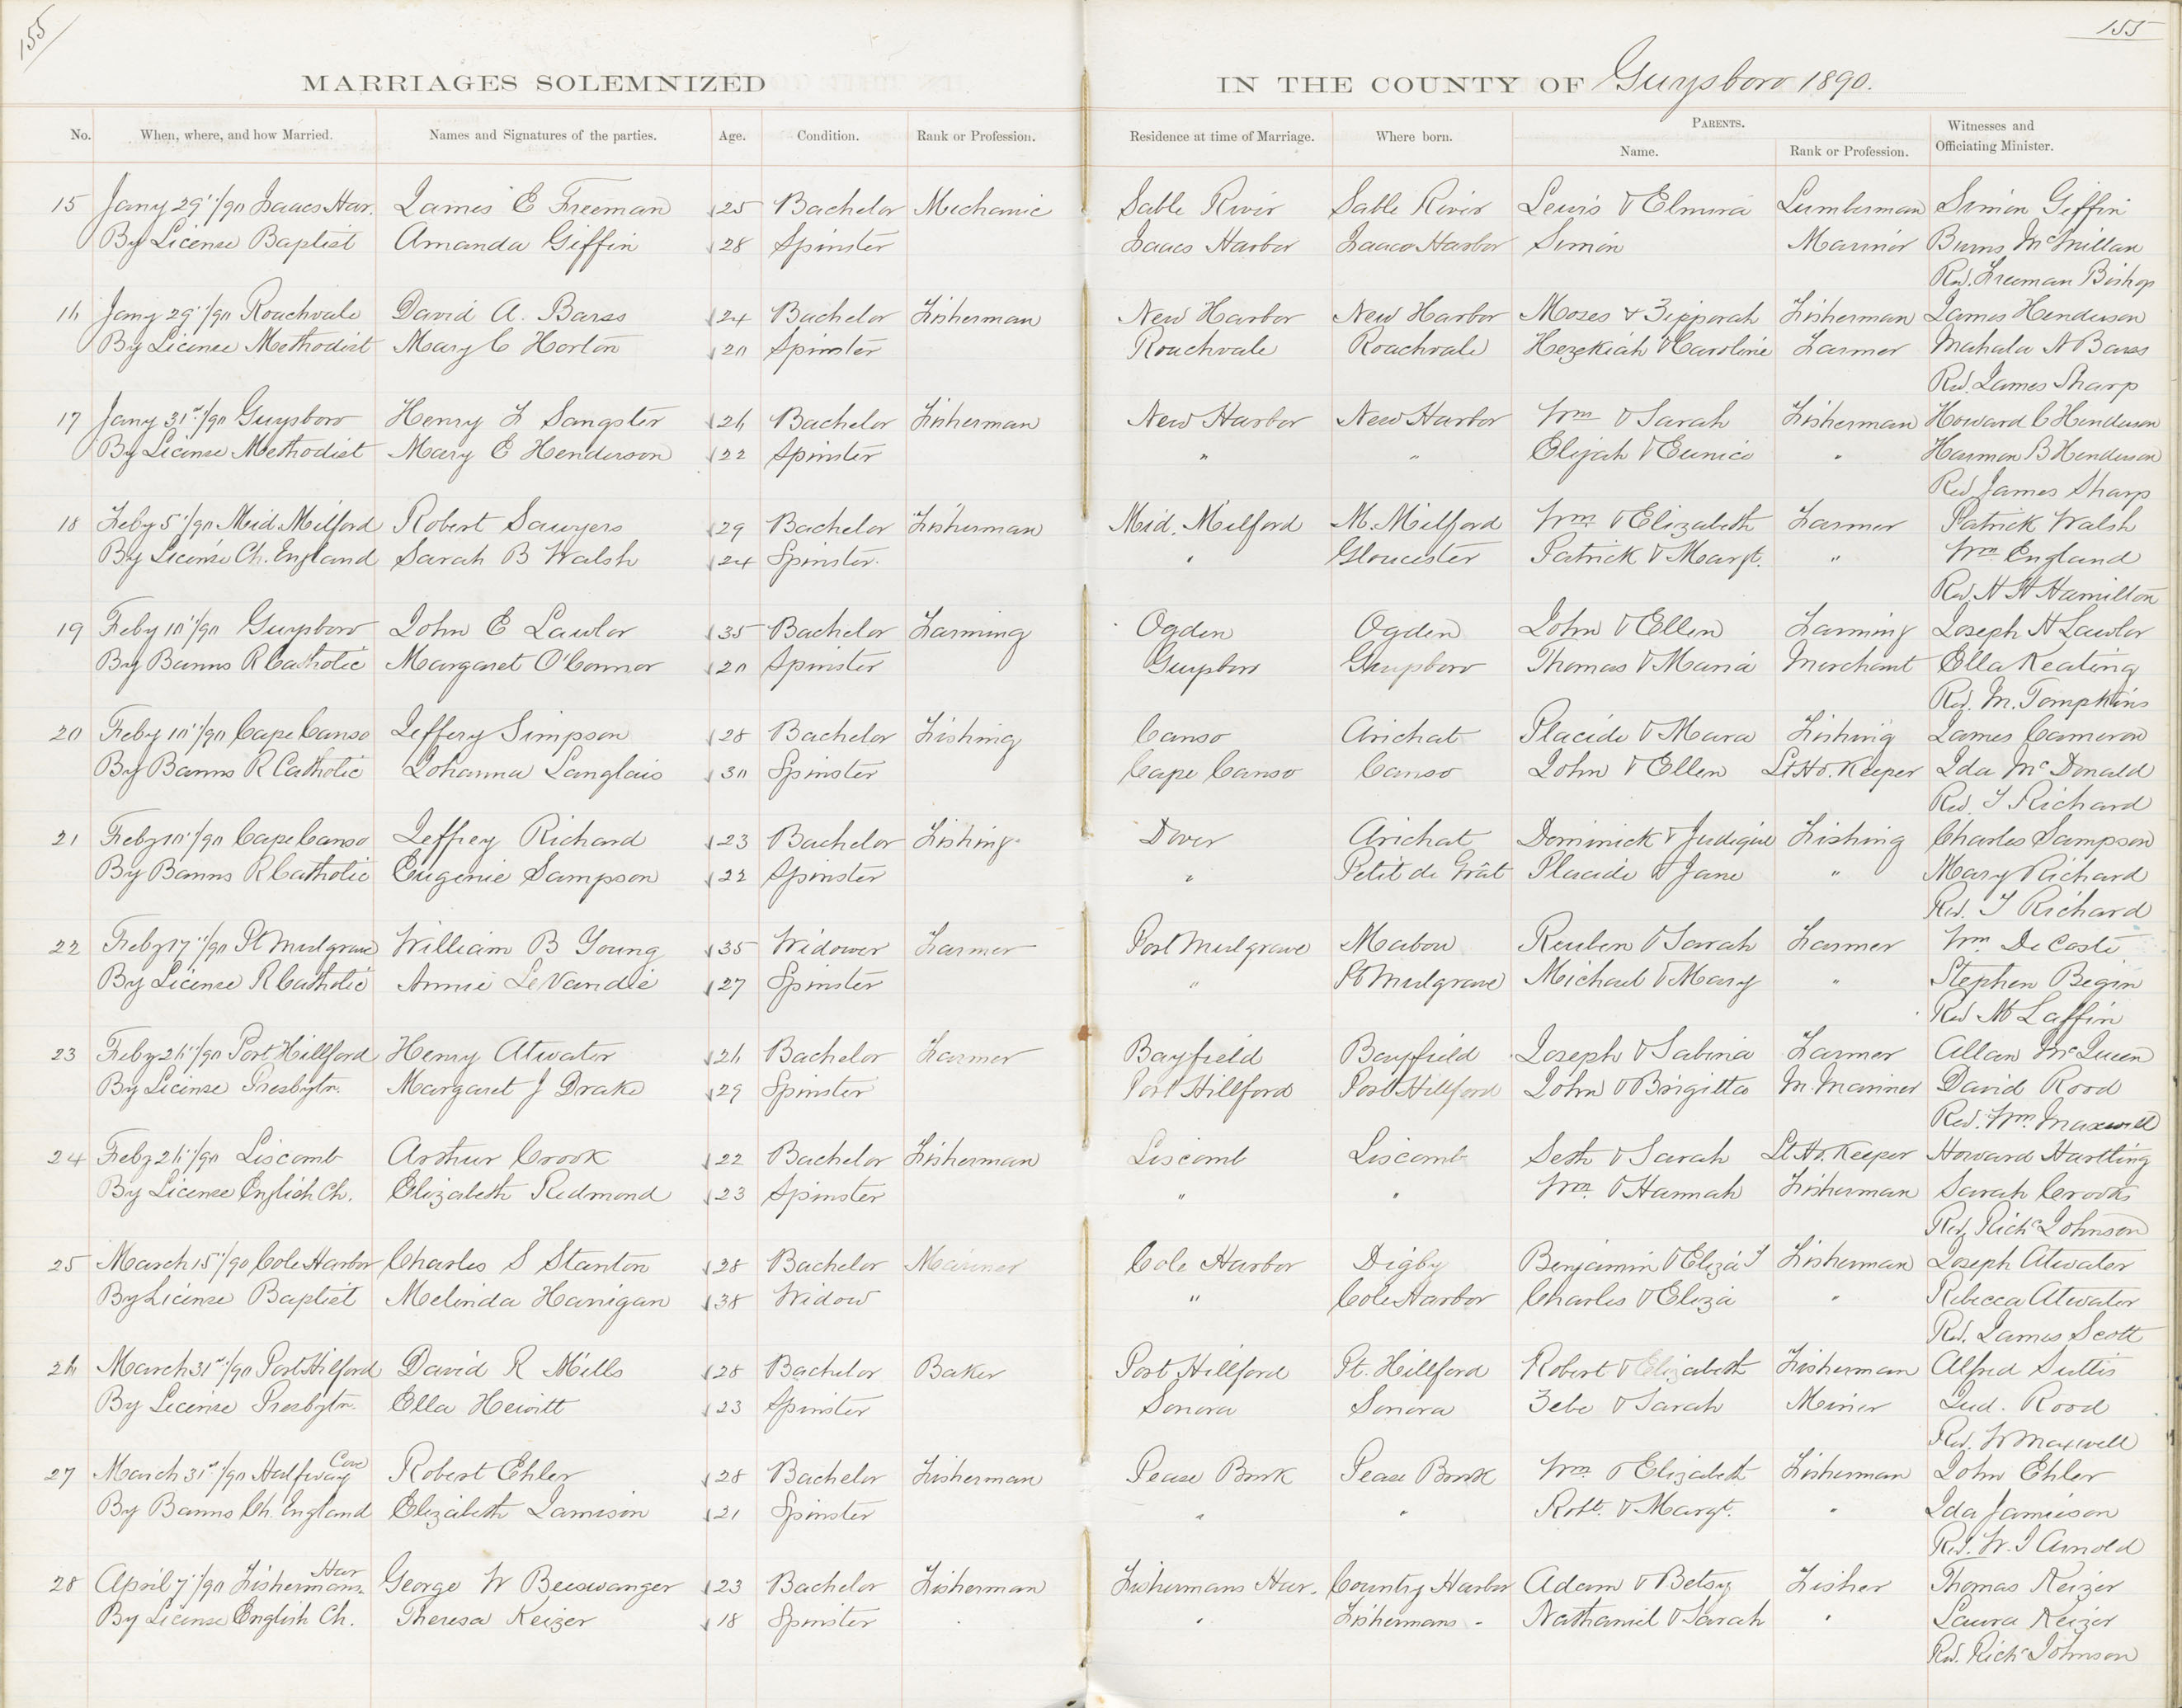 155
155
MARRIAGES SOLEMNIZED IN THE COUNTY OF Guysboro 1890.
No. When, where, and how Married. Names and Signatures of the parties. Age. Condition. Rank or Profession. Residence at time of Marriage. Where born. PARENTS. Witnesses and Officiating Minister.
Name. Rank or Profession.
15 Jany 29"/90 Isaacs Har. James E Freeman 25 Bachelor Mechanic Sable River Sable River Lewis & Elmira Lumberman Simon Giffin
By License Baptist Amanda Giffin 28 Spinster Isaacs Harbor Isaacs Harbor Simon Marinor Burns McMillan
Rev. Freeman Bishop
16 Jany 29"/90 Roachvale David A. Barss 24 Bachelor Fisherman New Harbor New Harbor Moses & Zipporah Fisherman James Henderson
By License Methodist Mary C Horton 20 Spinster Roachvale Roachvale Hezekiah & Caroline Farmer Mahala A Barss
Rev. James Sharp
17 Jany 31st/90 Guysboro Henry F Sangster 26 Bachelor Fisherman New Harbor New Harbor Wm & Sarah Fisherman Howard C Henderson
By License Methodist Mary E Henderson 22 Spinster " " Elijah & Eunice " Harmon B Henderson
Rev James Sharp
18 Feby 5"/90 Mid Milford Robert Sawyers 29 Bachelor Fisherman Mid. Milford M. Milford Wm & Elizabeth Farmer Patrick Walsh
By License Ch. England Sarah B Walsh 24 Spinster. " Gloucester Patrick & Margt. " Wm England
Rev. H H Hamilton
19 Feby 10"/90 Guysboro John E Lawlor 35 Bachelor Farming Ogden Ogden John & Ellen Farming Joseph H Lawlor
By Banns R Catholic Margaret O'Connor 20 Spinster Guysboro Guysboro Thomas & Maria Merchant Ella Keating
Rev. M. Tompkins
20 Feby 10"/90 Cape Canso Jeffery Simpson 28 Bachelor Fishing Canso Arichat Placide & Mara Fishing James Cameron
By Banns R Catholic Johanna Langlais 30 Spinster Cape Canso Canso John & Ellen Lt Ho. Keeper Ida McDonald
Rev. T Richard
21 Feby 10"/90 Cape Canso Jeffrey Richard 23 Bachelor Fishing Dover Arichat Dominick & Judique Fishing Charles Sampson
By Banns R Catholic Eugenie Sampson 22 Spinster " Petit de Grât Placide & Jane " Mary Richard
Rev. T Richard
22 Feby 17"/90 Pt Mulgrave William B Young 35 Widower Farmer Port Mulgrave Mabou Reuben & Sarah Farmer Wm DeCoste
By License R Catholic Annie LeVandie 27 Spinster " Pt Mulgrave Michael & Mary " Stephen Begin
Rev M Laffin
23 Feby 26"/90 Port Hillford Henry Atwater 26 Bachelor Farmer Bayfield Bayfield Joseph & Sabina Farmer Allan McQueen
By License Presbytn. Margaret J Drake 29 Spinster Port Hillford Port Hillford John & Brigitta M. Mariner David Rood
Rev. Wm. Maxwell
24 Feby 26"/90 Liscomb Arthur Crook 22 Bachelor Fisherman Liscomb Liscomb Seth & Sarah Lt Ho. Keeper Howard Hartling
By License English Ch. Elizabeth Redmond 23 Spinster " " Wm. & Hannah Fisherman Sarah Crooks
Rev. Richd Johnson
25 March 15"/90 Cole Harbor Charles S Stanton 28 Bachelor Mariner Cole Harbor Digby Benjamin & Eliza J Fisherman Joseph Atwater
By License Baptist Melinda Hanigan 38 Widow " Cole Harbor Charles & Eliza " Rebecca Atwater
Rev. James Scott
26 March 31st/90 Port Hilford David R Mills 28 Bachelor Baker Port Hillford Pt. Hillford Robert & Elizabeth Fisherman Alfred Suttis
By License Presbytn. Ella Hewitt 23 Spinster Sonora Sonora Zebe & Sarah Miner Jud. Rood
Rev. W Maxwell
27 March 31st/90 Halfway Cove Robert Ehler 28 Bachelor Fisherman Pease Brook Pease Brook Wm & Elizabeth Fisherman John Ehler
By Banns Ch. England Elizabeth Jamison 21 Spinster " " Robt. & Margt. " Ida Jamieson
Rev. W. J Arnold
28 April 7"/90 Fishermans Har George W Beeswanger 23 Bachelor Fisherman Fishermans Har. Country Harbor Adam & Betsy Fisher Thomas Keizer
By License English Ch. Theresa Keizer 18 Spinster " Fishermans " Nathaniel & Sarah " Laura Keizer
Rev. Richd Johnson